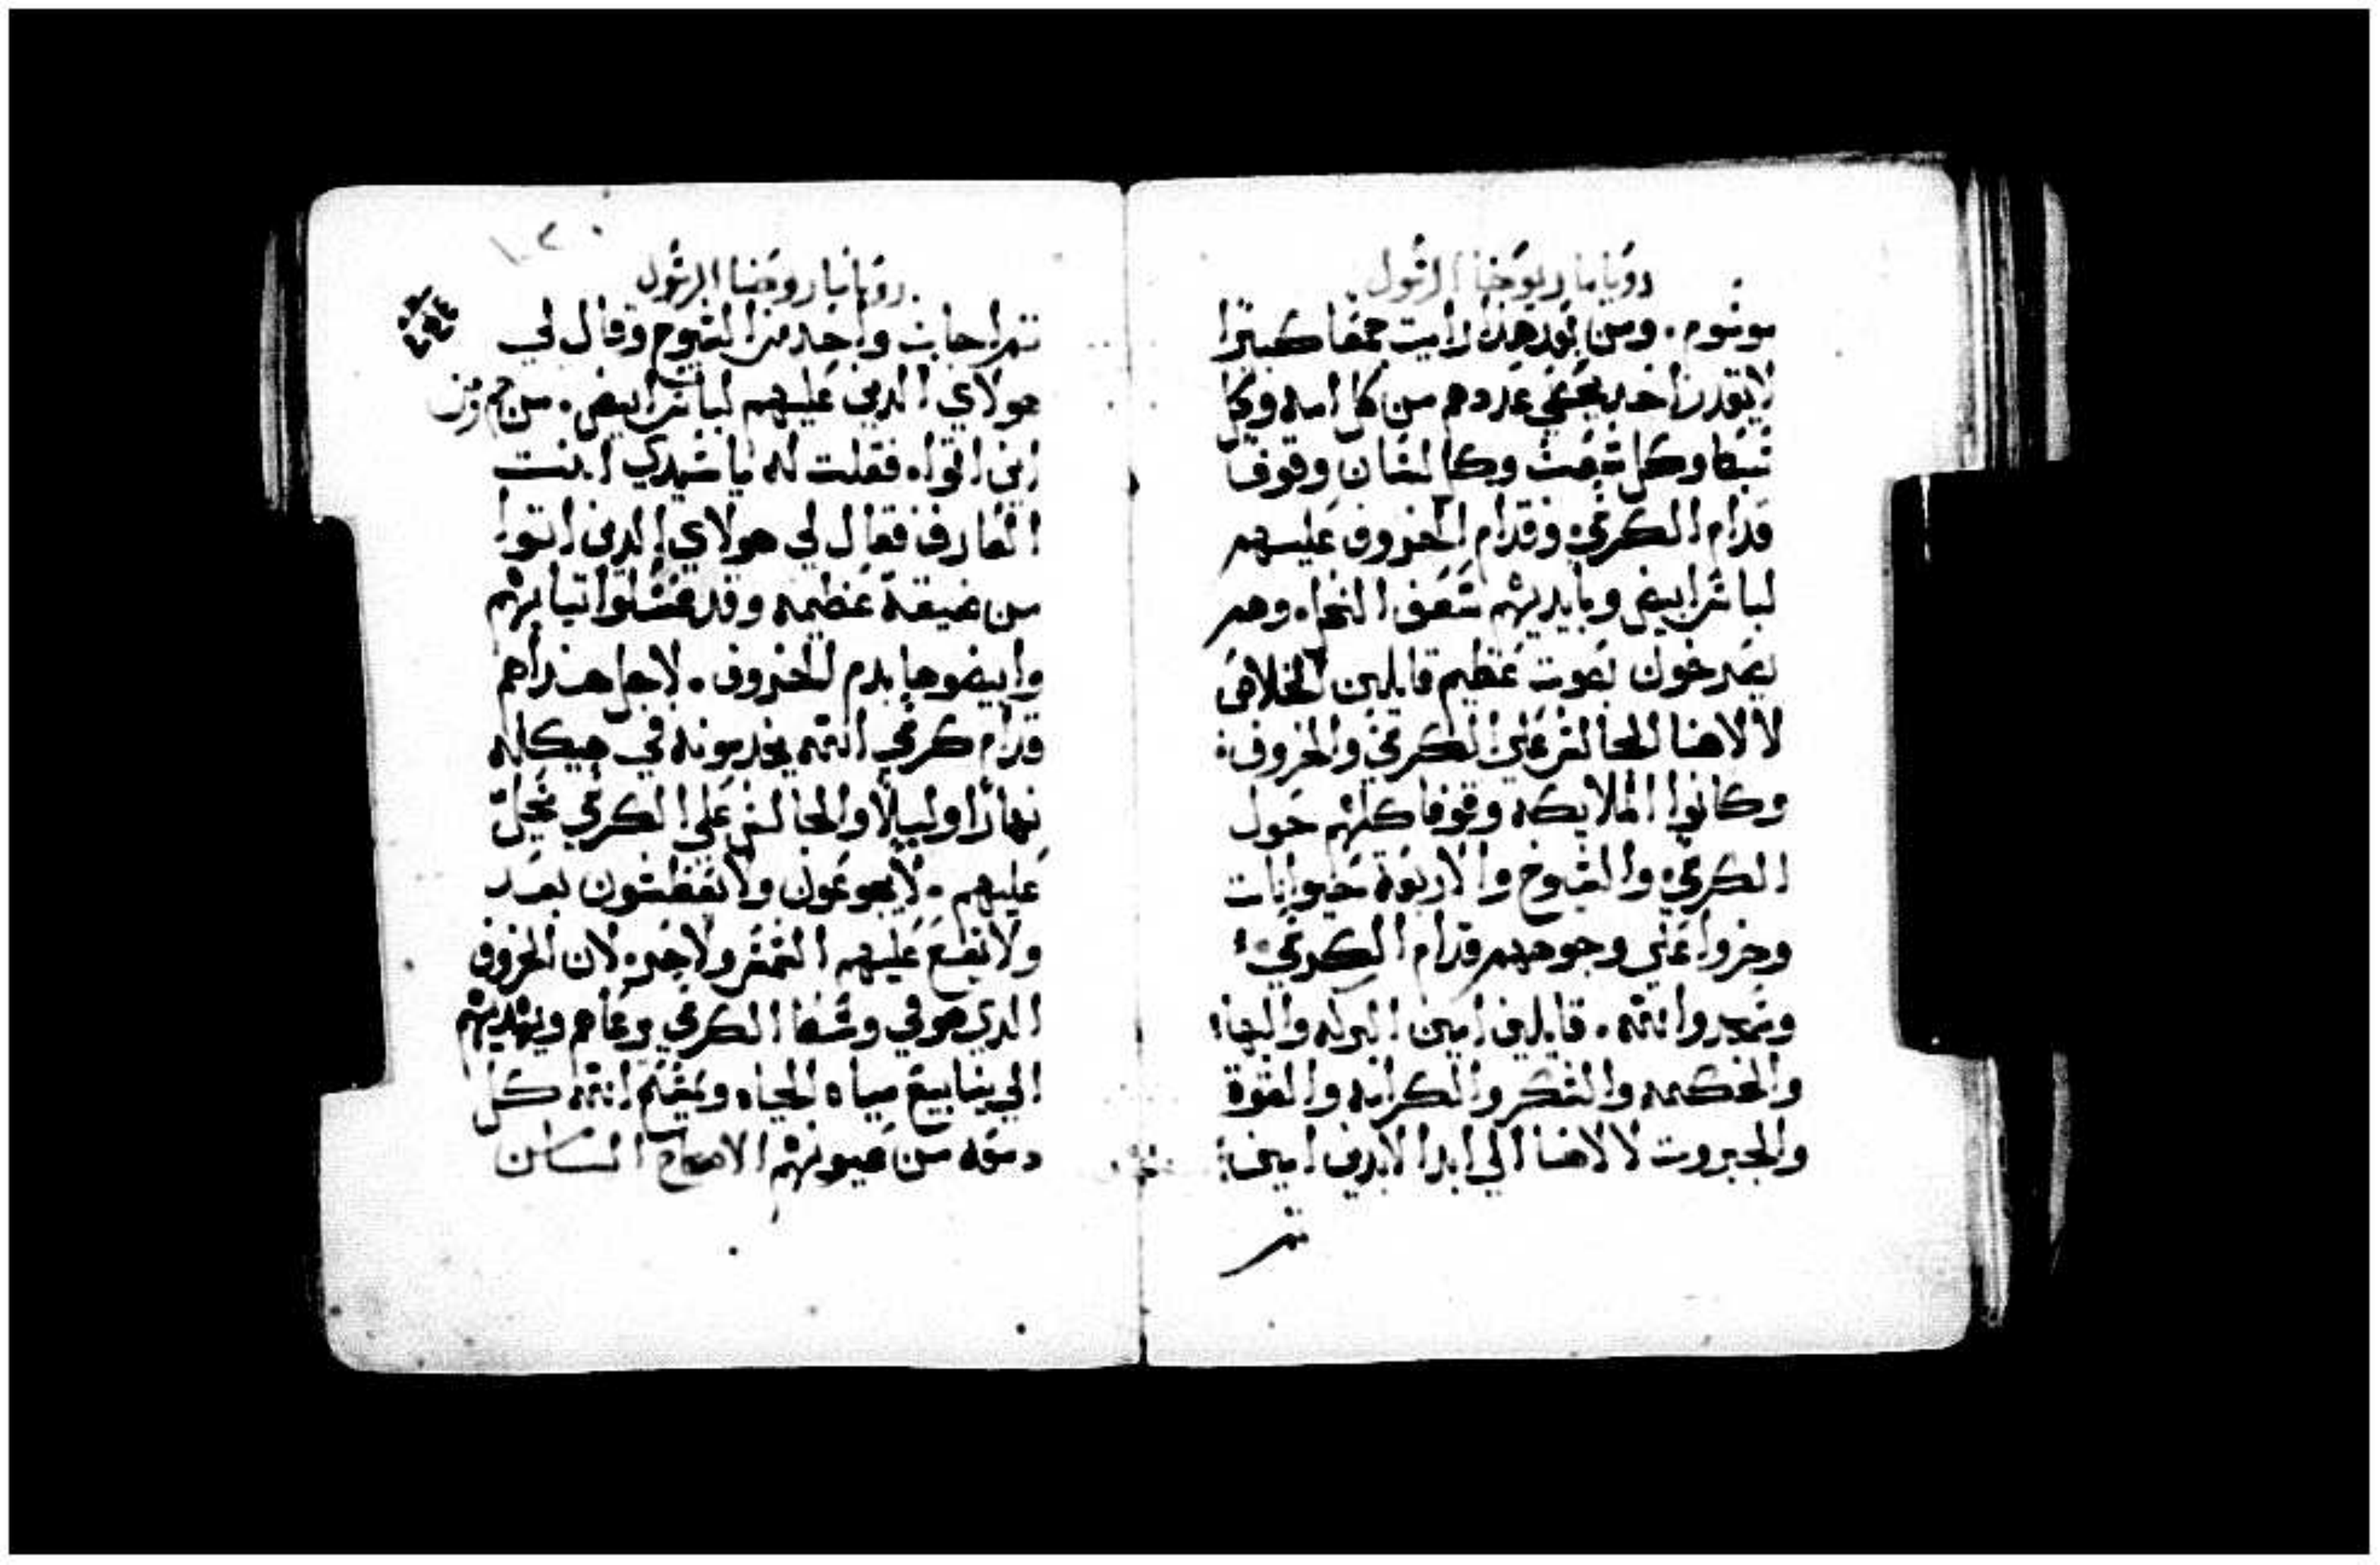 رويا مار يوحنا الرسول
موسوم. ومن بعد هذا رايت جمعا كبيرا
لا يقدر احد يحصي عددهم من كل امه وكل
سبط وكل شعب وكل لسان وقوف
قدام الكرسي وقدام الخروف عليهم
لباس ابيض وبايديهم سعف النخل. وهم
يصرخون بصوت عظيم قايلين الخلاص
لالاهنا الجالس على الكرسي والخروف:
وكانوا الملايكه وقوفا كلهم حول
الكرسي والشيوخ والاربعة حيوانات
وخروا على وجوههم قدام الكرسي
وسجدوا لله. قايلين امين البركه والبهاء
والحكمه والشكر والكرامه والقوة
والجبروت لالاهنا الي ابد الابدين امين:
ثم
رويا مار يوحنا الرسول
ثم اجاب واحد من الشيوخ وقال لي
هولاي الدين عليهم لباس ابيض. من هم ومن
اين اتوا. فقلت له يا سيدي انت
العارف فقال لي هولاي الدين اتوا
من ضيقة عظيمه وقد غسلوا تيابهم
وابيضوها بدم الخروف. لاجل هذا هم
قدام كرسي الله يخدمونه في هيكله
نهارا وليلا والجالس علي الكرسي يحل
عليهم. لا يجوعون ولا يعطشون بعد
ولا تقع عليهم الشمس ولا حر. لان الخروف
الدي هو في وسط الكرسي يرعاهم ويهديهم
الي ينابيع مياه الحياه ويمسح الله كل
دمعه من عيونهم الاصحاح الثامن